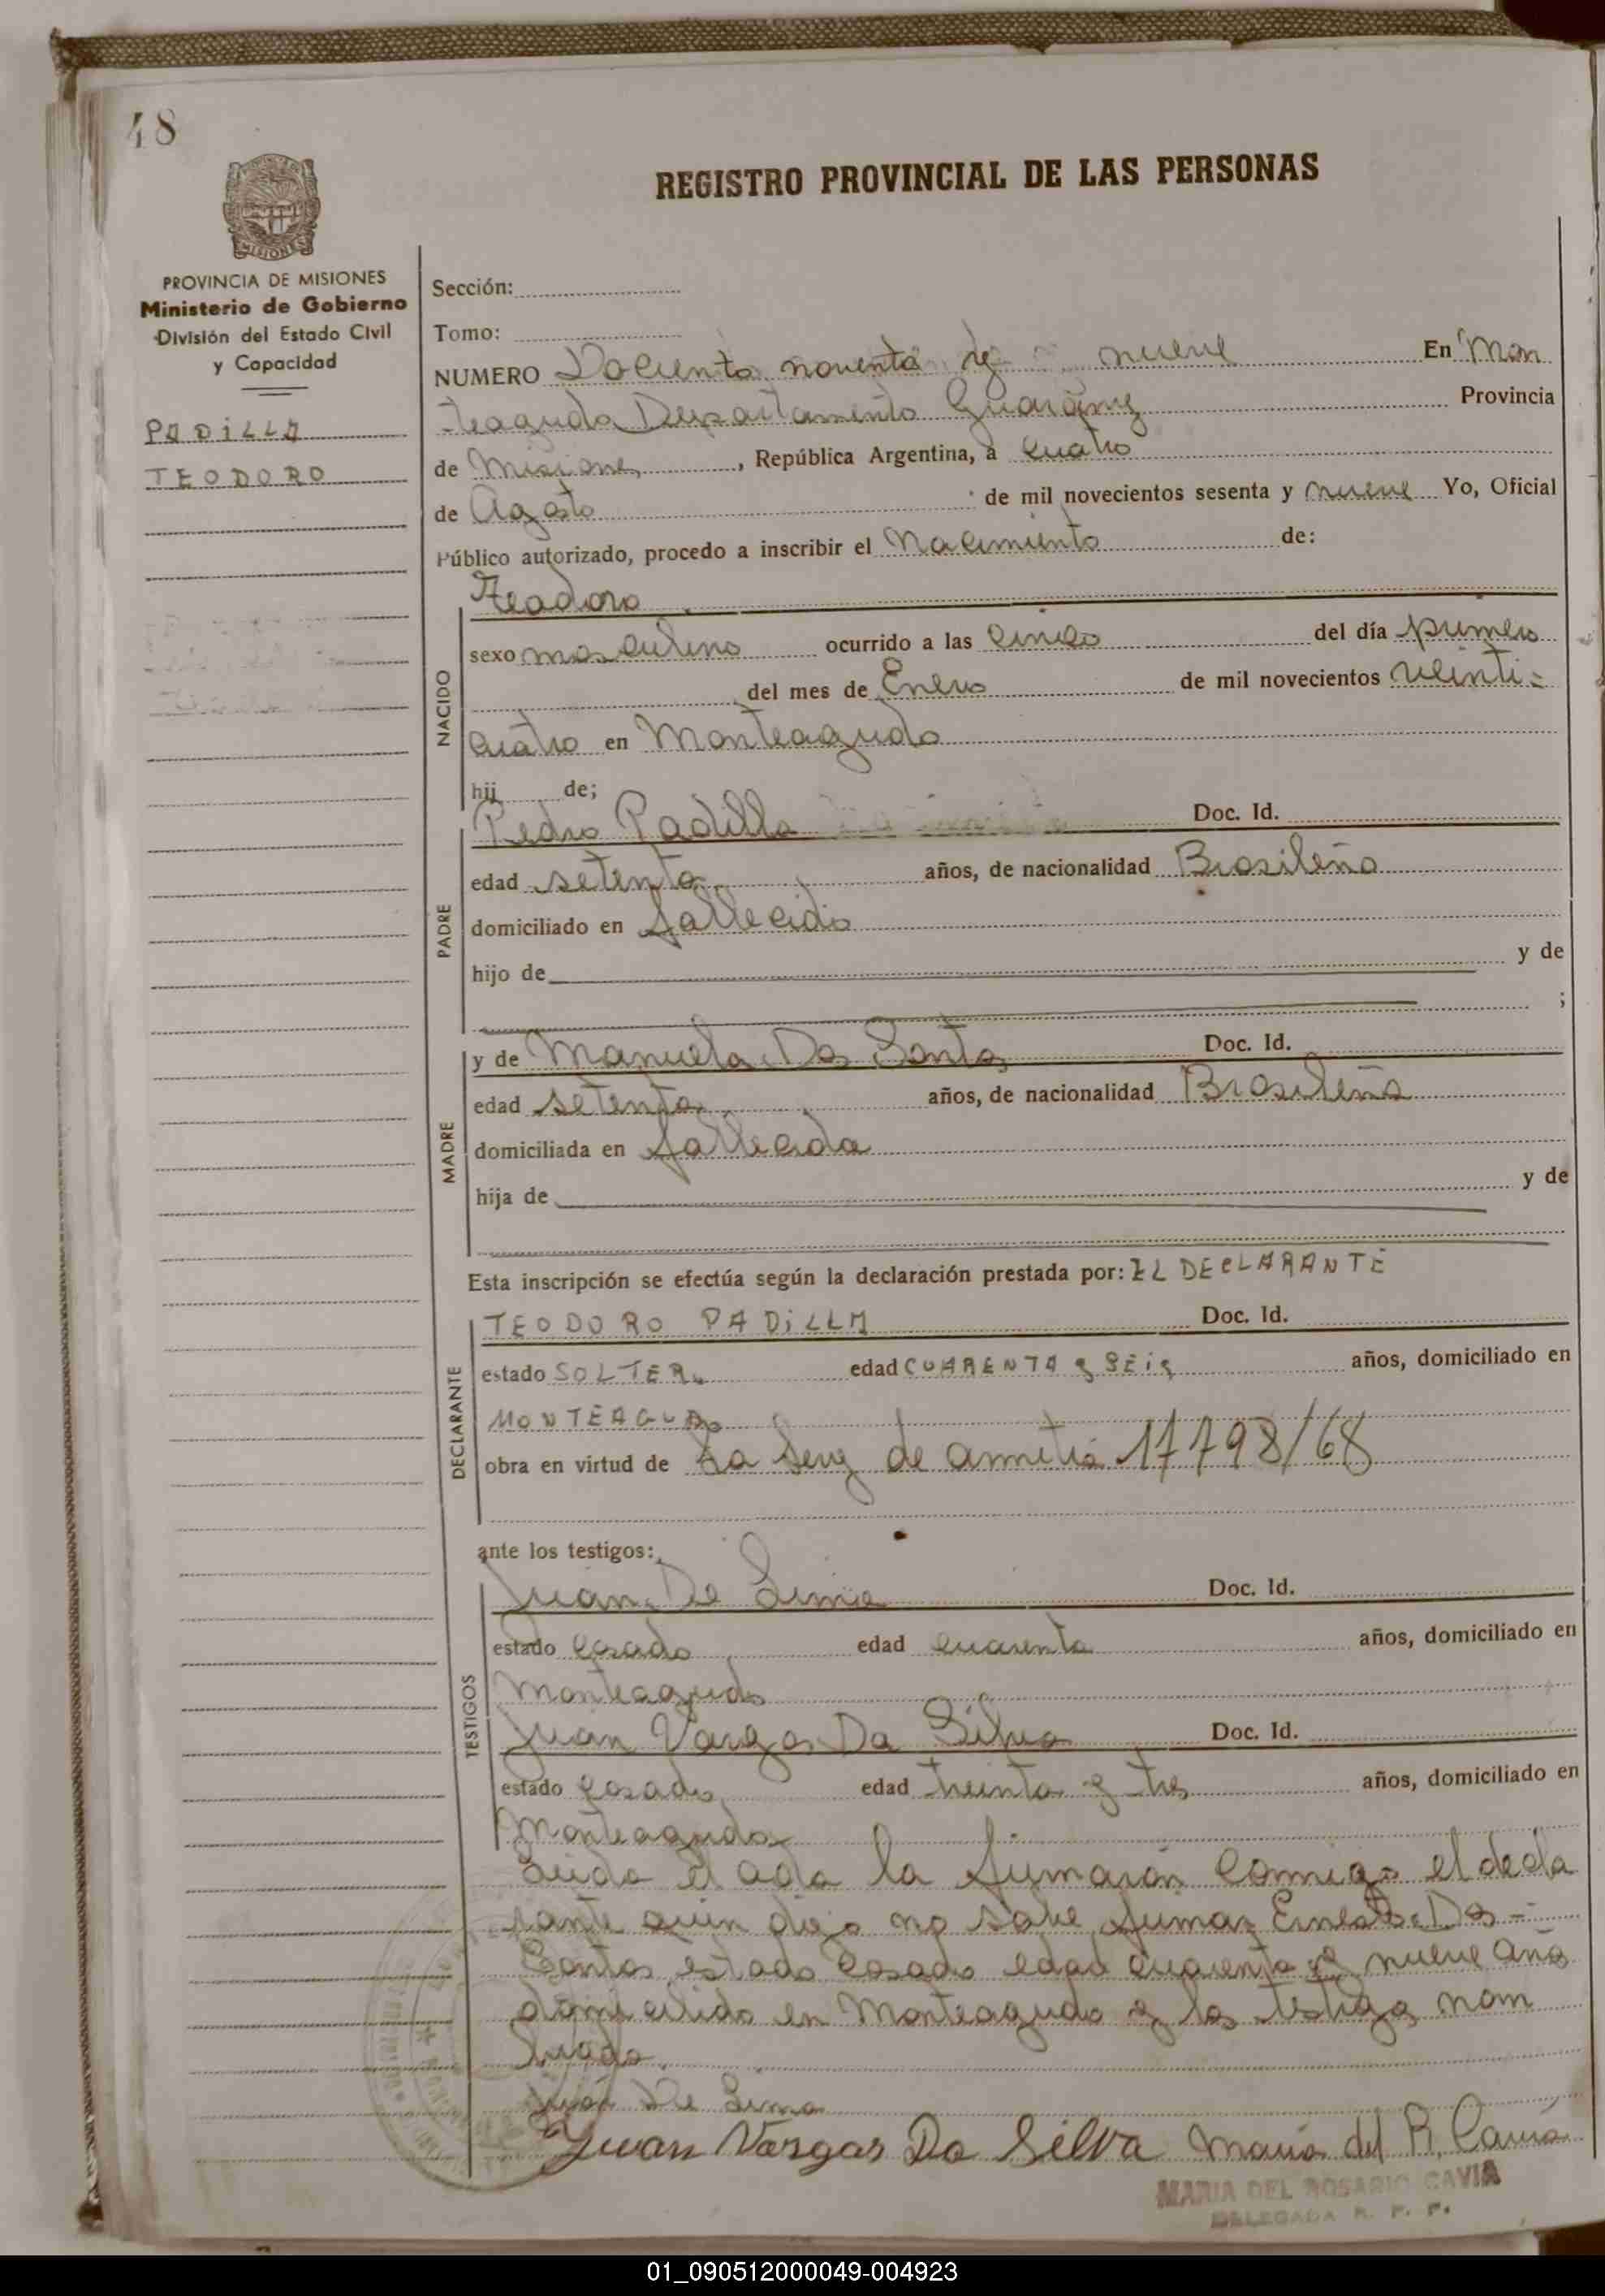 48
REGISTRO PROVINCIAL DE LAS PERSONAS
MISIONES
PROVINCIA DE MISIONES
Ministerio de Gobierno
División del Estado Civil
y Capacidad
PADiLLA
TEODORO
Sección:
Tomo:
NUMERO Dociento noventa y nueve En Mon
teagudo Departamento Guarany Provincia
de Misiones, República Argentina, a cuatro
de Agosto de mil novecientos sesenta y nueve Yo, Oficial
Público autorizado, procedo a inscribir el Nacimiento de:
NACIDO
Teodoro
sexo masculino ocurrido a las cinco del día primero
del mes de Enero de mil novecientos veinti=
cuatro en Monteagudo
hij de;
PADRE
Pedro Padilla Doc. Id.
edad setenta años, de nacionalidad Brasileño
domiciliado en fallecido
hijo de y de
;
MADRE
y de Manuela Dos Santos Doc. Id.
edad setenta años, de nacionalidad Brasileña
domiciliada en fallecida
hija de y de
Esta inscripción se efectúa según la declaración prestada por: EL DECLARANTE
DECLARANTE
TEODORO PADiLLA Doc. Id.
estado SOLTERo edad CUARENTA y SEiS años, domiciliado en
MONTEAGUDo
obra en virtud de La ley de amnitia 17798/68
ante los testigos:
TESTIGOS
Juan De Lima Doc. Id.
estado casado edad cuarenta años, domiciliado en
Monteagudo
Juan Vargas Da Silva Doc. Id.
estado casado edad treinta y tres años, domiciliado en
Monteagudo
Leida el acta la firmaron comigo el decla
rante quien dijo no sabe firmar Ernesto Dos -
Santos estado casado edad cuarenta y nueve años
domicilido en Monteagudo y los testigos nom
brado
Juan De Lima
Juan Vargas Da Silva Maria del R. Cavia
MARIA DEL ROSARIO CAVIA
DELEGADA R. P. P.
01_090512000049-004923